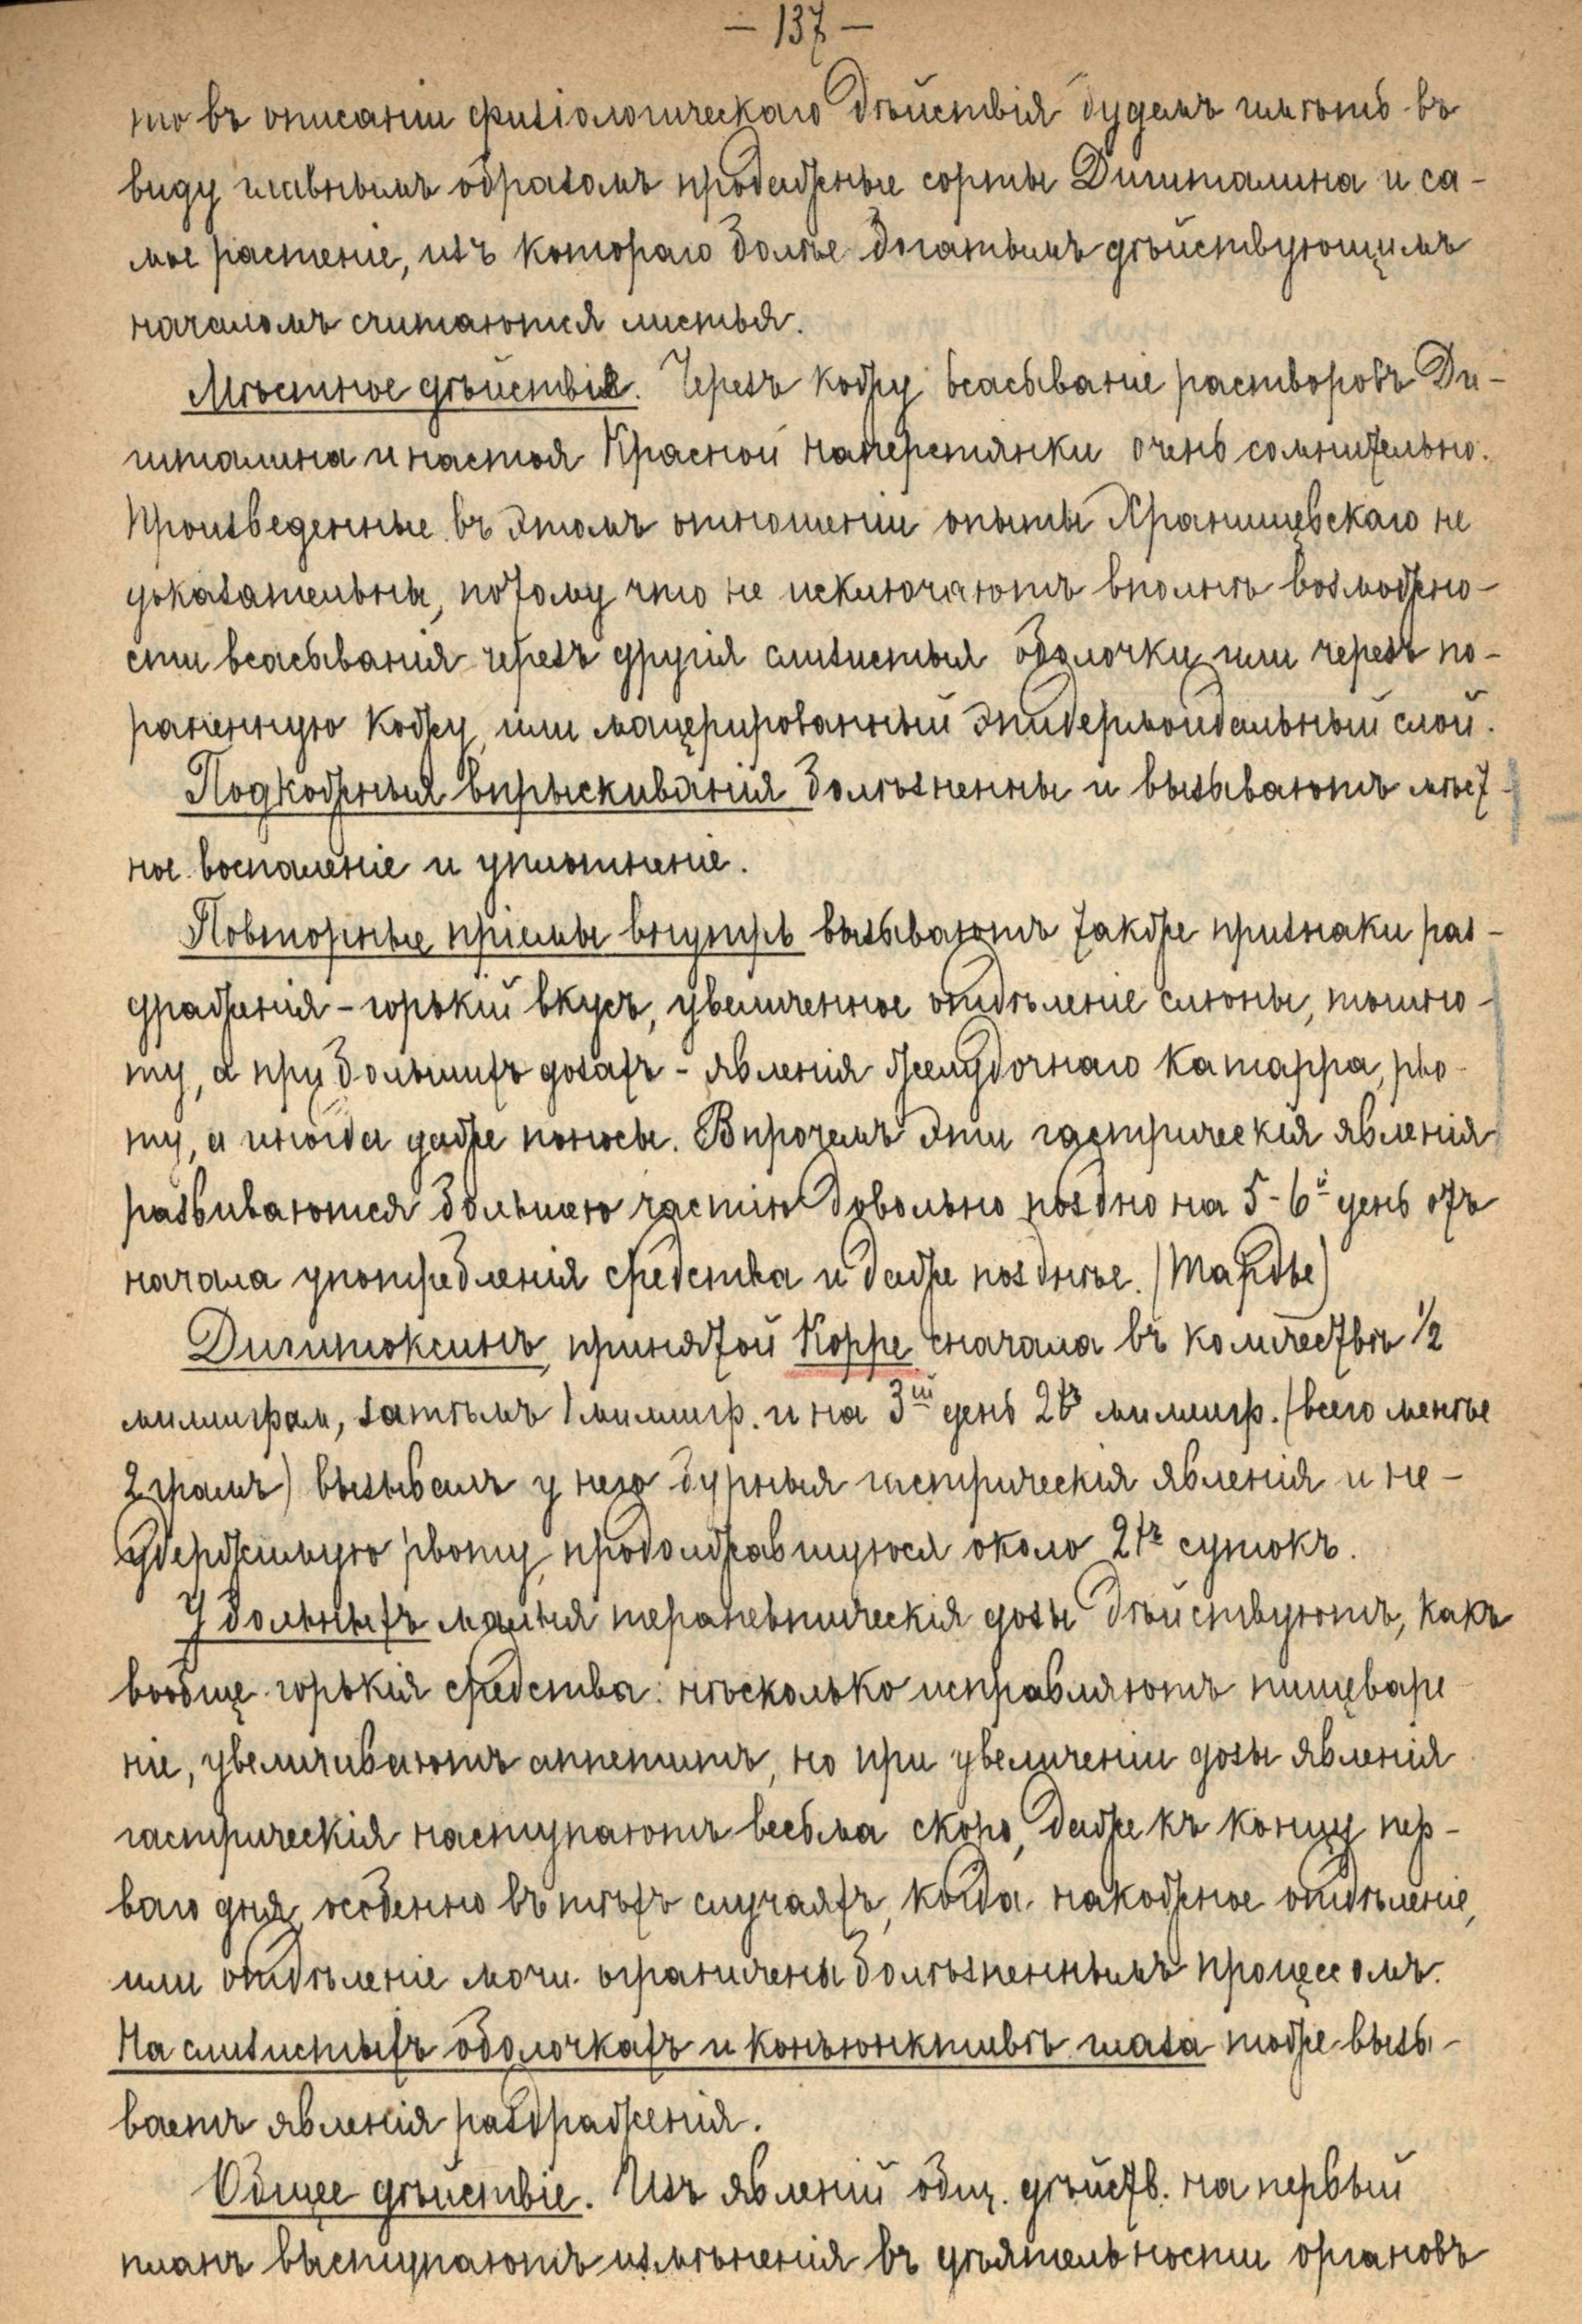 — 137 —
то въ описаніи физіологическаго дѣйствія будемъ имѣть въ
виду главнымъ образомъ продажные сорты Дигиталина и са-
мое растеніе, изъ котораго болѣе богатымъ дѣйствующимъ
началомъ считаются листья.
Мѣстное дѣйствіе. Черезъ кожу всасываніе растворовъ Ди-
гиталина и настоя Красной наперстянки очень сомнительно.
Произведенные въ этомъ отношеніи опыты Хранищевскаго не
доказательны, потому что не исключаютъ вполнѣ возможно-
сти всасыванія черезъ другія слизистыя оболочки или черезъ по-
раненную кожу, или мацерированный эпидермоидальный слой.
Подкожныя впрыскиванія болѣзненны и вызываютъ мѣст-
ное воспаленіе и уплотненіе.
Повторные пріемы внутрь вызываютъ также признаки раз-
драженія - горькій вкусъ, увеличенное отдѣленіе слюны, тошно-
ту, а при большихъ дозахъ - явленія желудочнаго катарра, рво-
ту, а иногда даже поносы. Впрочемъ эти гастрическія явленія
развиваются большею частію довольно поздно на 5-6й день отъ
начала употребленія средства и даже позднѣе. (Тардье)
Дигитоксинъ, принятой Коppe сначала въ количествѣ 1/2
миллиграм, затѣмъ 1 миллигр. и на 3ій день 2хъ миллигр. (всего менѣе
2 грамъ) вызывалъ у него бурныя гастрическія явленія и не-
удержимую рвоту, продолжавшуюся около 2хъ сутокъ.
У больныхъ малыя терапевтическія дозы дѣйствуютъ, какъ
вообще горькія средства: нѣсколько исправляютъ пищеваре-
ніе, увеличиваютъ аппетитъ, но при увеличеніи дозы явленія
гастрическія наступаютъ весьма скоро, даже къ концу пер-
ваго дня, особенно въ тѣхъ случаяхъ, когда накожное отдѣленіе,
или отдѣленіе мочи ограничены болѣзненнымъ процессомъ.
На слизистыхъ оболочкахъ и конъюнктивѣ глаза тоже вызы-
ваетъ явленія раздраженія.
Общее дѣйствіе. Изъ явленій общ. дѣйств. на первый
планъ выступаютъ измѣненія въ дѣятельности органовъ